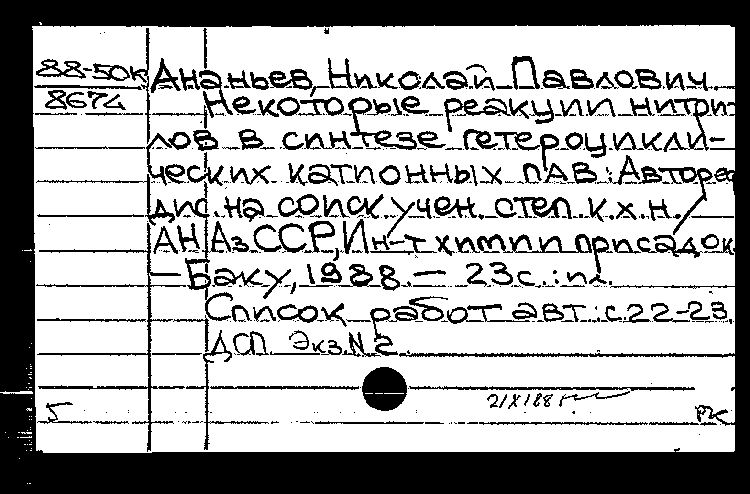 88-50к Ананьев, Николай Павлович.
8674 Некоторые реакции нитри-
лов в синтезе гетероцикли-
ческих катионных ПАВ: Автореф
дис. на соиск учен. степ. к.х.н. /
АН АзССР, Ин-т химии присадок
— Баку, 1988. — 23с.: ил.
Список работ авт: с.22-23.
ДСП. Экз.N2.
21X188
5 РК